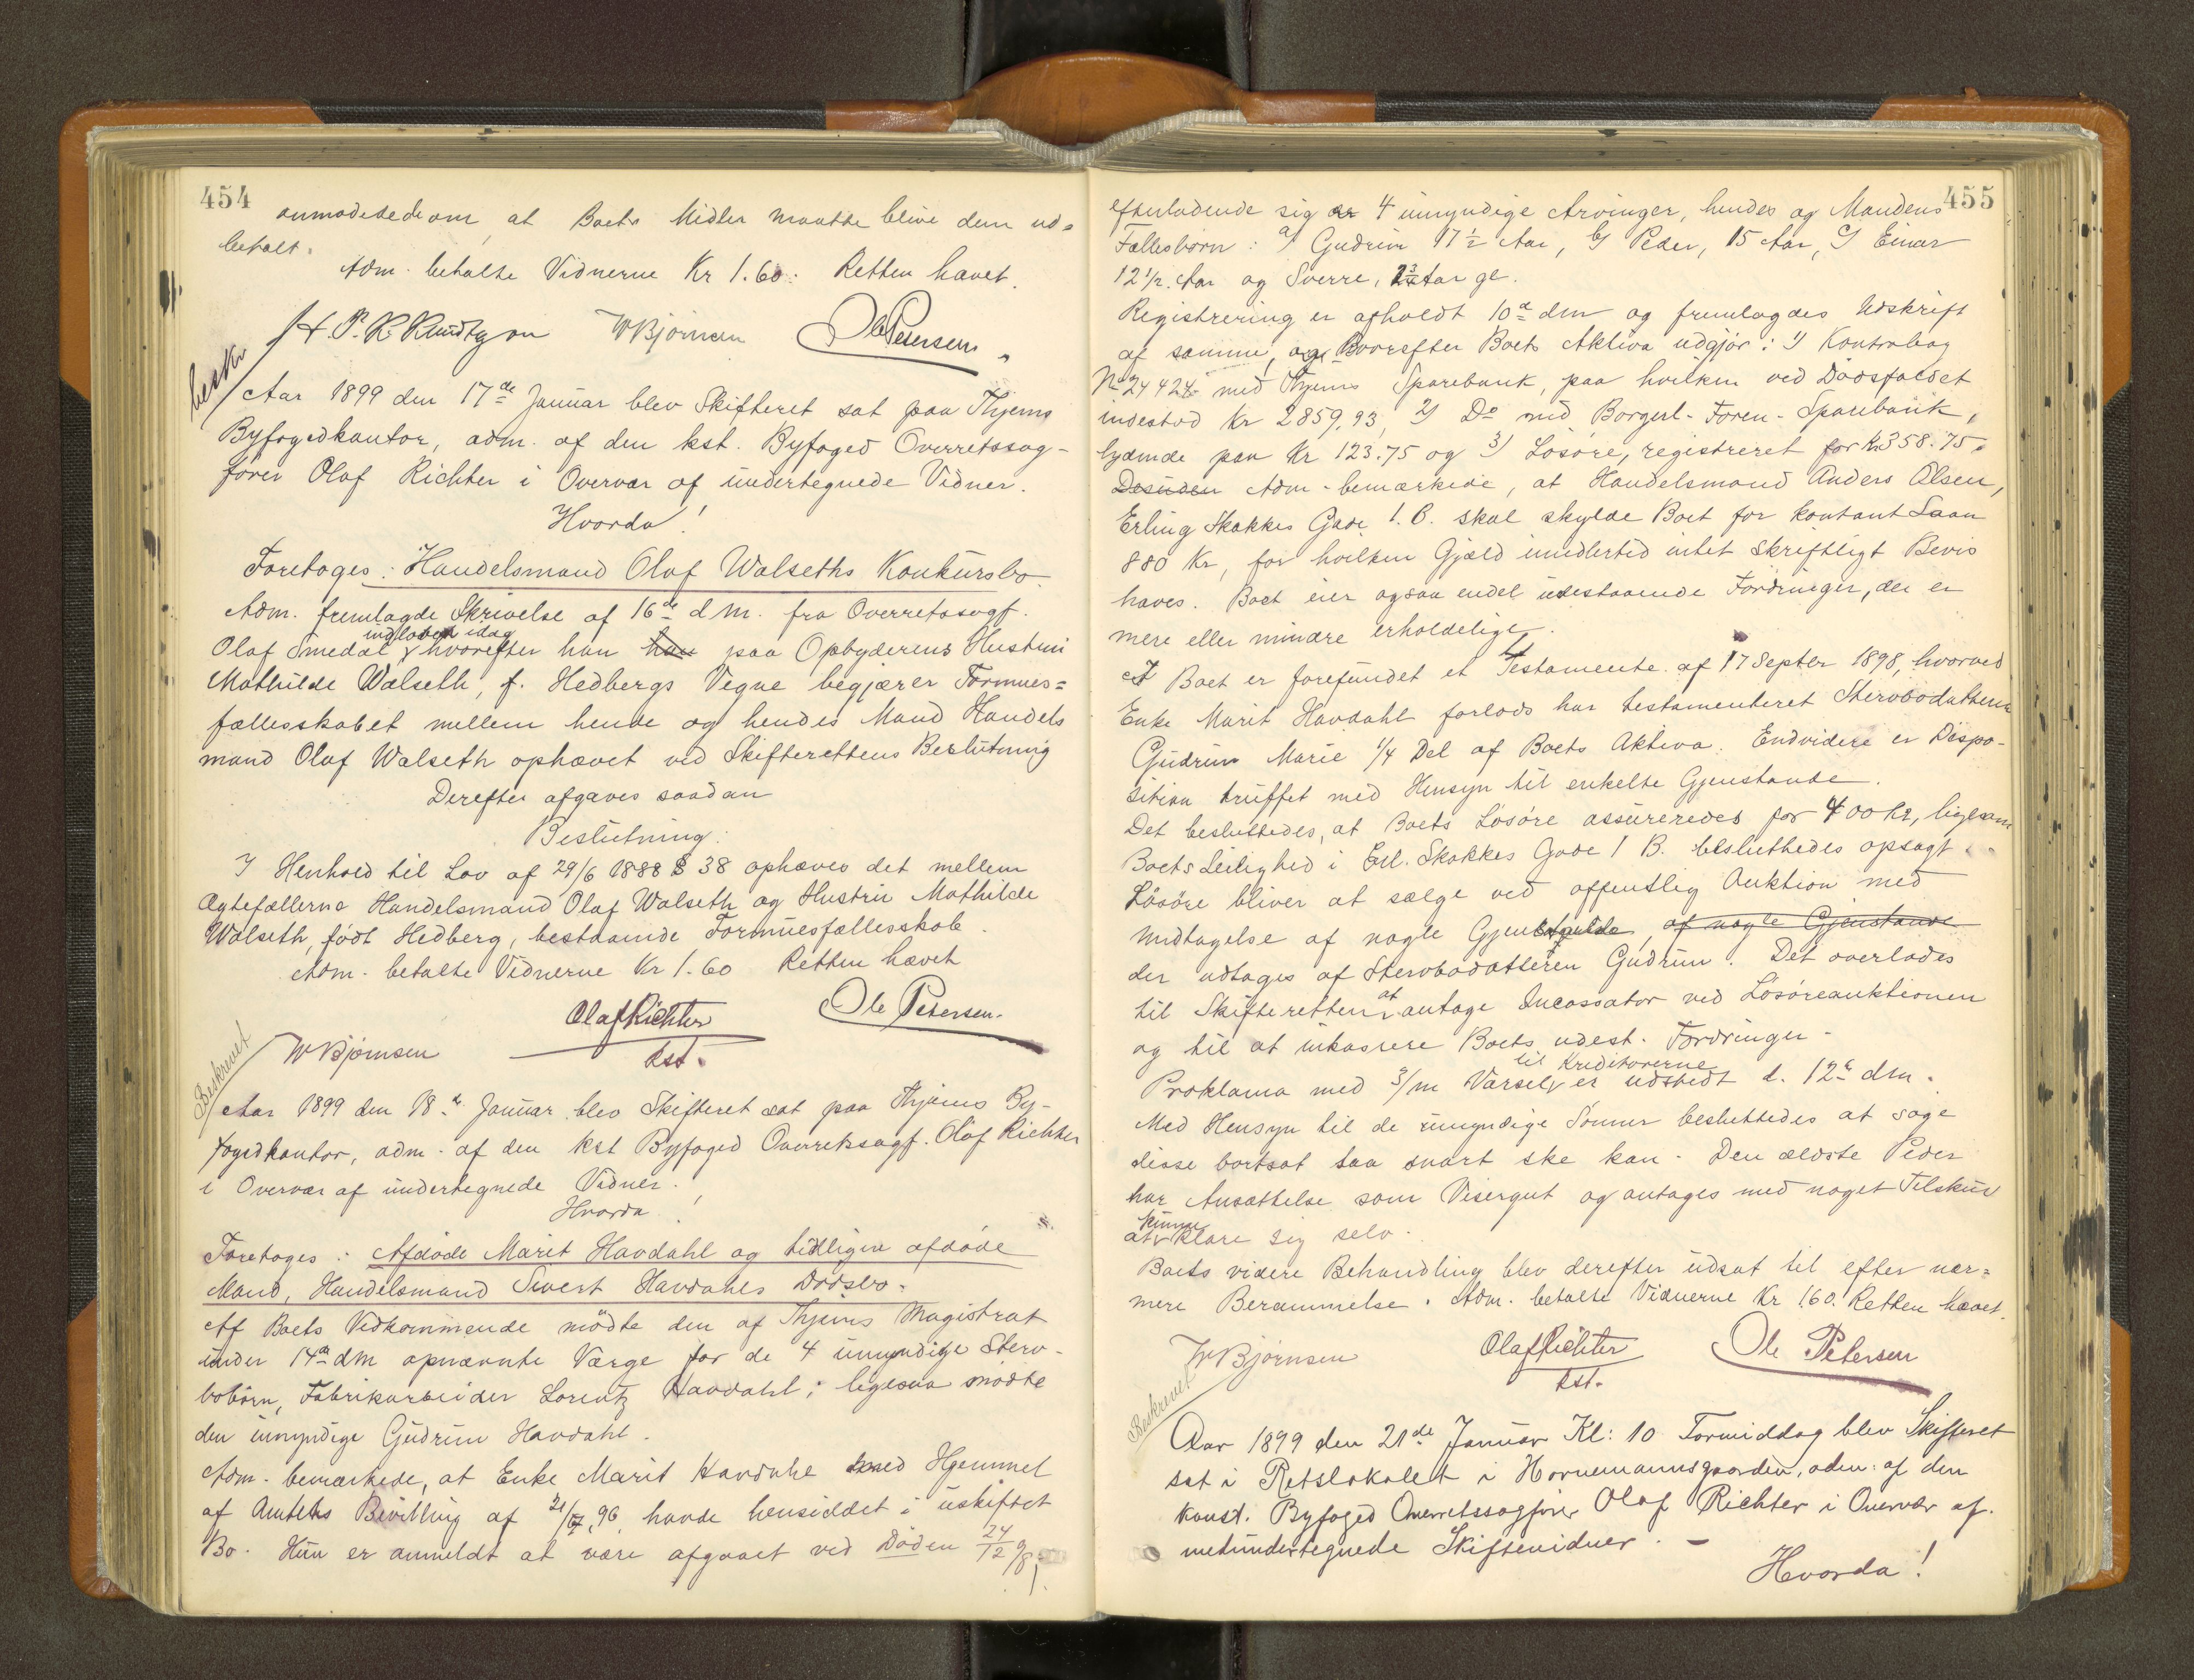 454
anmodede om, at Boets Midler maatte blive dem ud-
betalt.
Adm. betalte Vidnerne Kr 1.60. Retten hævet.
WBjørnsen Ole Petersen
beskr
Aar 1899 den 17de Januar blev Skifteret sat paa Thjems
Byfogedkontor, adm. af den kst. Byfoged Overretssag-
fører Olaf Richter i Overvær af undertegnede Vidner.
Hvorda!
Foretoges: Handelsmand Olaf Walseths Konkursbo.
Adm. fremlagde Skrivelse af 16de d M. fra Overretssagf.
indloben idag
Olaf Smedal hvorefter han han paa Opbyderens Hustru
Mathilde Walseth, f. Hedbergs Vegne begjærer Formues=
fællesskabet mellem hende og hendes Mand Handels
mand Olaf Walseth ophævet ved Skifterettens Beslutning
Derefter afgaves saadan
Beslutning:
I Henhold til Lov af 29/6 1888 § 38 ophæves det mellem
Ægtefællerne Handelsmand Olaf Walseth og Hustru Mathilde
Walseth, født Hedberg, bestaaende Formuesfællesskab.
Adm. betalte Vidnerne Kr 1.60 Retten hævet
Olaf Richter Ole Petersen.
WBjørnsen kst.
Beskrevet
Aar 1899 den 18de Januar blev Skifteret sat paa Thjems By-
fogedkontor, adm. af den kst Byfoged Overretssagf. Olaf Richter
i Overvær af undertegnede Vidner.
Hvorda!
Foretoges: Afdøde Marit Havdahl og tidligere afdøde
Mand, Handelsmand Sivert Havdahls Dødsbo.
Af Boets Vedkommende mødte den af Thjems Magistrat
under 14de dM opnævnte Værge for de 4 umyndige Sterv-
bobørn, Fabrikarbeider Lorentz Havdahl; ligesaa mødte
den umyndige Gudrun Havdahl.
Adm. bemærkede, at Enke Marit Havdahl med Hjemmel
af Amtets Bevilling af 21/7 96, havde hensiddet i uskiftet
Bo. Hun er anmeldt at være afgaaet ved Døden 24/12 98,
455
efterladende sig 4 umyndige Arvinger, hendes og Mandens
Fællesbørn: a/ Gudrun 17 1/2 Aar, b/ Peder, 15 Aar, c/ Einar
12 1/2 Aar og Sverre, Aar gl.
Registrering er afholdt 10de dm og fremlagdes Udskrift
af samme, og hvorefter Boets Aktiva udgjør: 1/ Kontrabog
No 24424 med Thjems Sparebank, paa hvilken ved Dødsfaldet
indestod Kr 2859,93, 2/ Do med Borgerl. Foren. Sparebank,
lydende paa Kr 123.75 og 3/ Løsøre, registreret for Kr 358.75.
Desuden Adm. bemærkede, at Handelsmand Anders Olsen,
Erling Skakkes Gade 1.B. skal skylde Boet for kontant Laan
880 Kr, for hvilken Gjæld imidlertid intet skriftligt Bevis
haves. Boet eier ogsaa endel udestaaende Fordringer, der er
mere eller mindre erholdelige.
I Boet er forefundet et Testamente af 17 Septbr 1898, hvorved
Enke Marit Havdahl forlods har testamenteret Stervbodatteren
Gudrun Marie 1/4 Del af Boets Aktiva. Endvidere er Dispo-
sition truffet med Hensyn til enkelte Gjenstande.
Det besluttedes, at Boets Løsøre assureredes for 400 Kr, ligesom
Boets Leilighed i Erl. Skakkes Gade 1 B. besluttedes opsagt.
Løsøre bliver at sælge ved offentlig Auktion med
Undtagelse af nogle Gjenstande, af nogle Gjenstande
der udtages af Stervbodatteren Gudrun. Det overlades
til Skifteretten at antage Incassator ved Løsøreauktionen
og til at inkassere Boets udest. Fordringer.
til Kreditorerne
Proklama med 3/m Varsel er udstedt d. 12te dm.
Med Hensyn til de umyndige Sønner besluttedes at søge
disse bortsat saa snart ske kan. Den ældste Peder
har Ansættelse som Visergut og antages med noget Tilskud
kunne
at klare sig selv.
Boets videre Behandling blev derefter udsat til efter nær=
mere Berammelse. Adm. betalte Vidnerne Kr 1.60. Retten hævet.
WBjørnsen Olaf Richter Ole Petersen
kst.
Beskrevet
Aar 1899 den 21de Januar Kl: 10 Formiddag blev Skifteret
sat i Retslokalet i Hornemannsgaarden, adm. af den
konst. Byfoged Overretssagfører Olaf Richter i Overvær af
medundertegnede Skiftevidner. —
Hvorda!